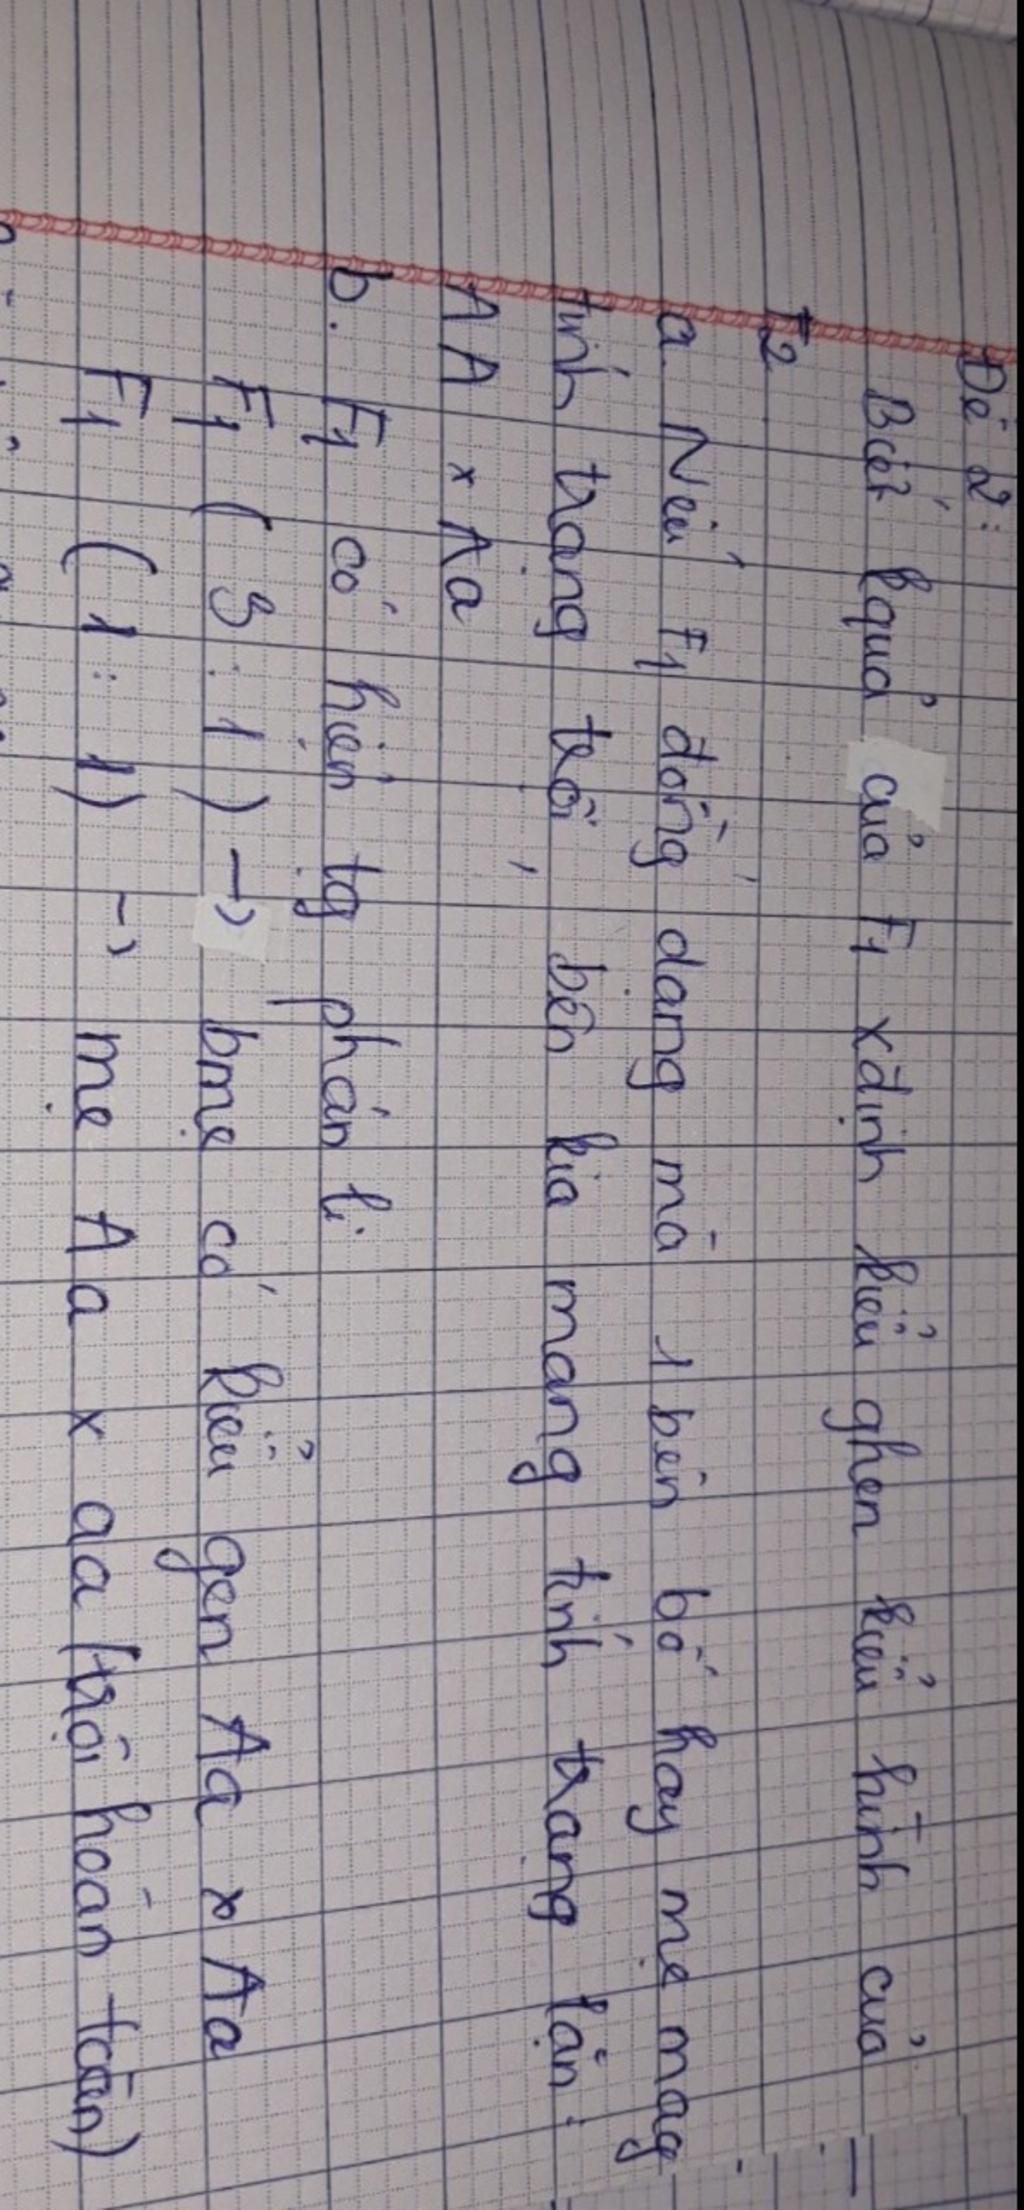 Đề 2:
Biết kquả của F1 xđịnh kiểu ghen kiểu hình của
F2
a. Nếu F1 đồng dạng mà 1 bên bố hay mẹ mag
tính trạng trội, bên kia mang tính trạng lặn:
AA x Aa
b. F1 có hiện tg phân li
F1 ( 3 : 1 ) → bmẹ có kiểu gen Aa x Aa
F1 ( 1 : 1 ) → mẹ Aa x aa (trội hoàn toàn)